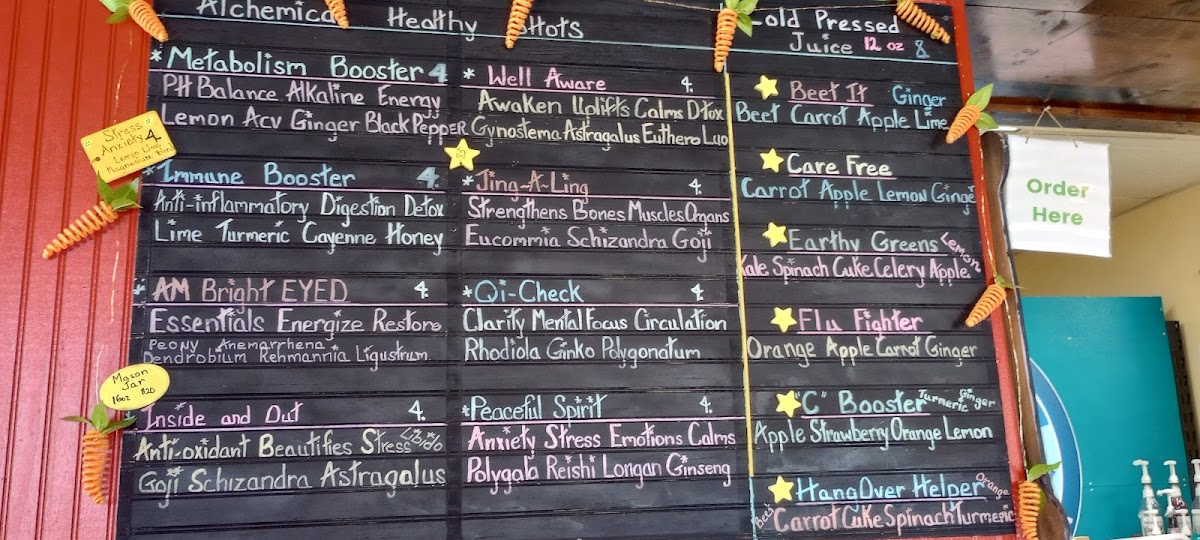 Alchemical Healthy Shots
*Metabolism Booster 4
PH Balance Alkaline Energy
Lemon Acv Ginger Black Pepper
Stress
Anxiety 4.
Lemon Lime
Magnesium
*Immune Booster 4.
Anti-inflammatory Digestion Detox
Lime Turmeric Cayenne Honey
*AM Bright EYED 4.
Essentials Energize Restore
Peony Anemarrhena
Dendrobium Rehmannia Ligustrum
Mason
Jar
16oz $20
*Inside and Out 4.
Anti-oxidant Beautifies Stress Libido
Goji Schizandra Astragalus
*Well Aware 4.
Awaken Uplifts Calms Dtox
Gynostema Astragalus Euthero Luo
*Jing-A-Ling 4.
Strengthens Bones Muscles Organs
Eucommia Schizandra Goji
*Qi-Check 4.
Clarity Mental Focus Circulation
Rhodiola Ginko Polygonatum
*Peaceful Spirit 4.
Anxiety Stress Emotions Calms
Polygala Reishi Longan Ginseng
Cold Pressed
Juice 12 oz 8.
Beet It Ginger
Beet Carrot Apple Lime
Care Free
Carrot Apple Lemon Ginge
Earthy Greens Lemon
Kale Spinach Cuke Celery Apple
Flu Fighter
Orange Apple Carrot Ginger
"C" Booster Turmeric Ginger
Apple Strawberry Orange Lemon
HangOver Helper Orange
Carrot Cuke Spinach Turmeric
Order
Here